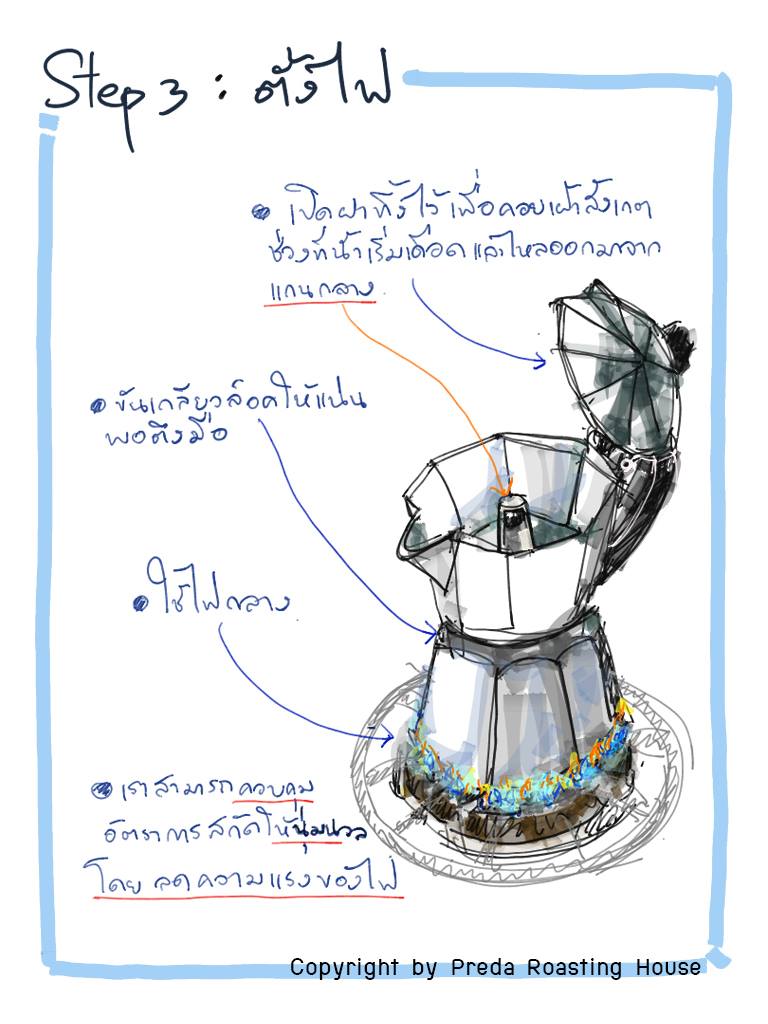 Step 3 : ตั้งไฟ
เปิดฝาทิ้งไว้เพื่อคอยเฝ้าสังเกต
ช่วงที่น้ำเริ่มเดือดแล้วไหลออกมาจาก
แกนกลาง
ขันเกลียวล็อคให้แน่น
พอตึงมือ
ใช้ไฟกลาง
เราสามารถควบคุม
อัตราการสกัดให้นุ่มนวล
โดย ลดความแรงของไฟ
Copyright by Preda Roasting House